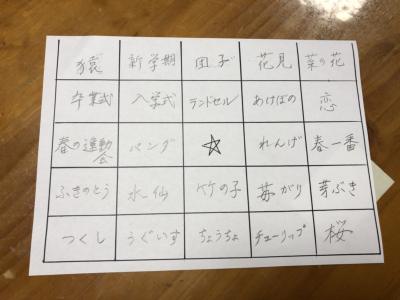 猿 新学期 団子 花見 菜の花
卒業式 入学式 ランドセル あけぼの 恋
春の運動会 パンダ ☆ れんげ 春一番
ふきのとう 水仙 竹の子 苺がり 芽ぶき
つくし うぐいす ちょうちょ チューリップ 桜